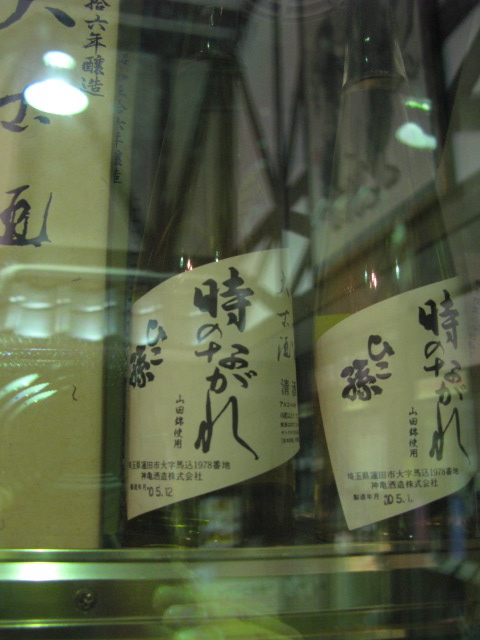 拾六年醸造
大古酒
時の
ながれ
ひこ孫
山田錦使用
大古酒
清酒
埼玉県蓮田市大字馬込1978番地
神亀酒造株式会社
製造年月 05.12
時の
ながれ
ひこ孫
山田錦使用
埼玉県蓮田市大字馬込1978番地
神亀酒造株式会社
製造年月 05.1.